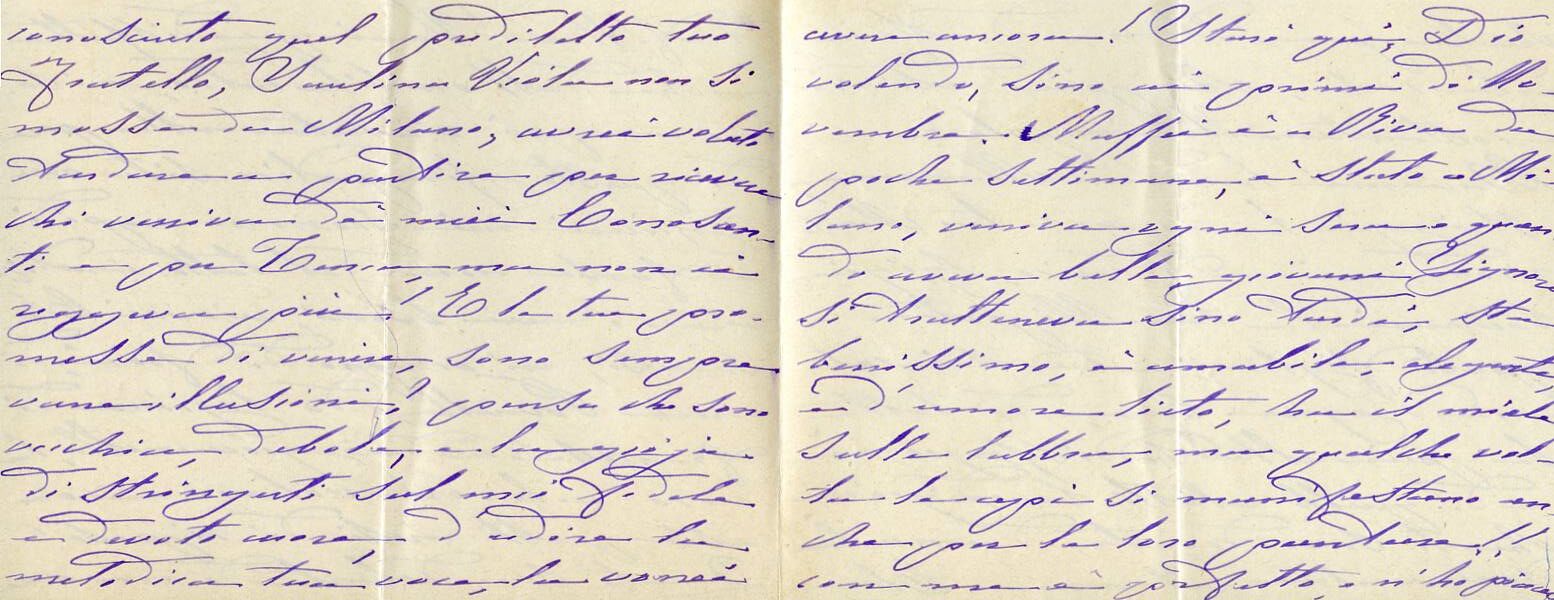 conosciuto quel prediletto tuo
Fratello, Paolina Viola non si
mosse da Milano, avrei voluto
tardare a partire per ricevere
chi veniva dai miei Conoscen-
ti e per Tencia, ma non ci
reggeva più! E la tua pro-
messa di venire, sono sempre
vane illusioni? pensa che sono
vecchia, debole, e la gioja
di stringerti sul mio fedele
e devoto cuore, d'udire la
melodica tua voce, la vorrei
avere ancora! Starò quì, Dio
volendo, sino ai primi di No-
vembre. Maffei è a Riva da
poche settimane, è stato a Mi-
lano, veniva ogni sera e quan
do aveva belle, giovani Signore
si tratteneva sino tardi, sta
benissimo, è amabile, elegante,
e d'umore lieto, ha il miele
sulle labbra, ma qualche vol-
ta le api si manifestano an-
che per le loro punture!!
con me è perfetto, e n'ho piacere